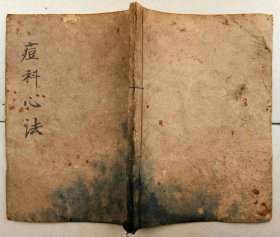 痘科心法